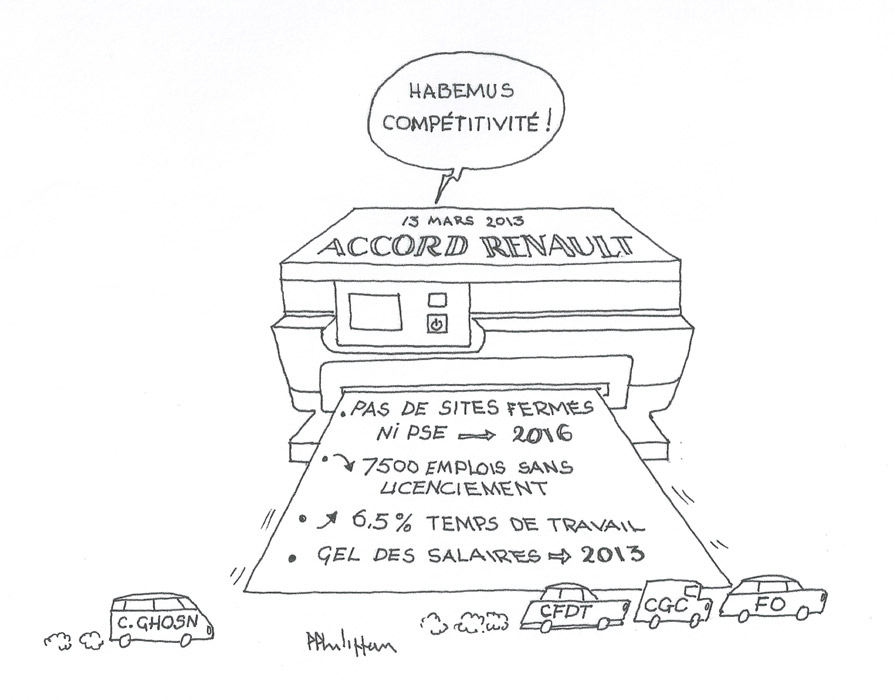 HABEMUS
COMPÉTITIVITÉ !
13 MARS 2013
ACCORD RENAULT
. PAS DE SITES FERMÉS
NI PSE ⇒ 2016
• ↘ 7500 EMPLOIS SANS
LICENCIEMENT
• ↗ 6,5% TEMPS DE TRAVAIL
• GEL DES SALAIRES ⇒ 2013
C. GHOSN
CFDT
CGC
FO